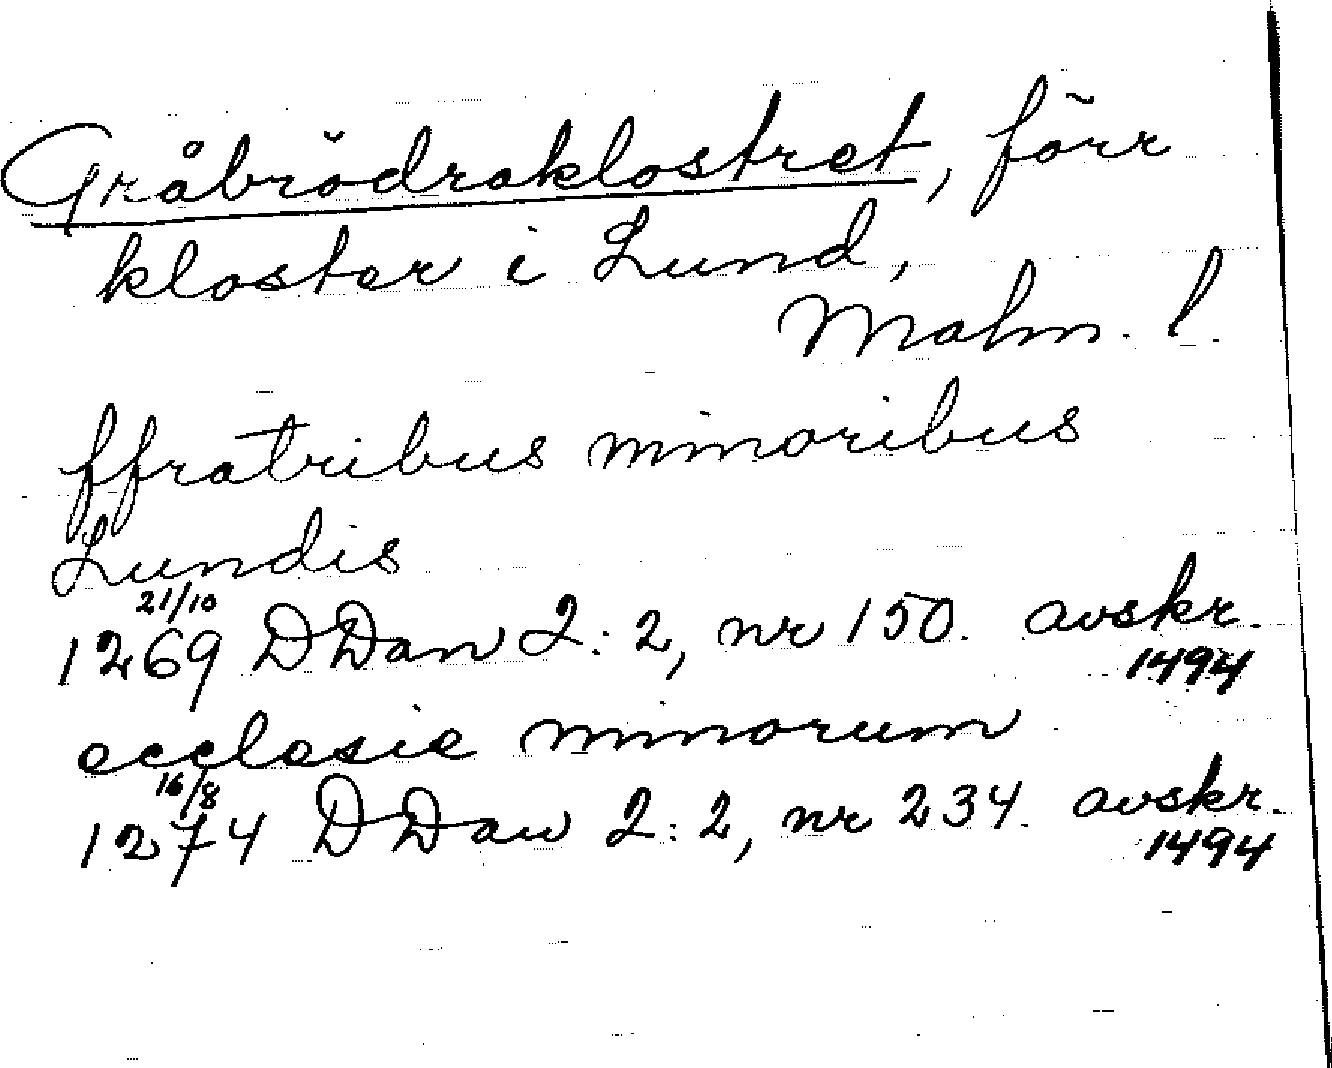 Gråbrödraklostret, förr
kloster i Lund,
Malm. l.
ffratribus minoribus
Lundis
21/10
1269 DDan 2:2, nr 150. avskr.
1494
ecclesie minorum
16/8
1274 DDan 2:2, nr 234. avskr.
1494